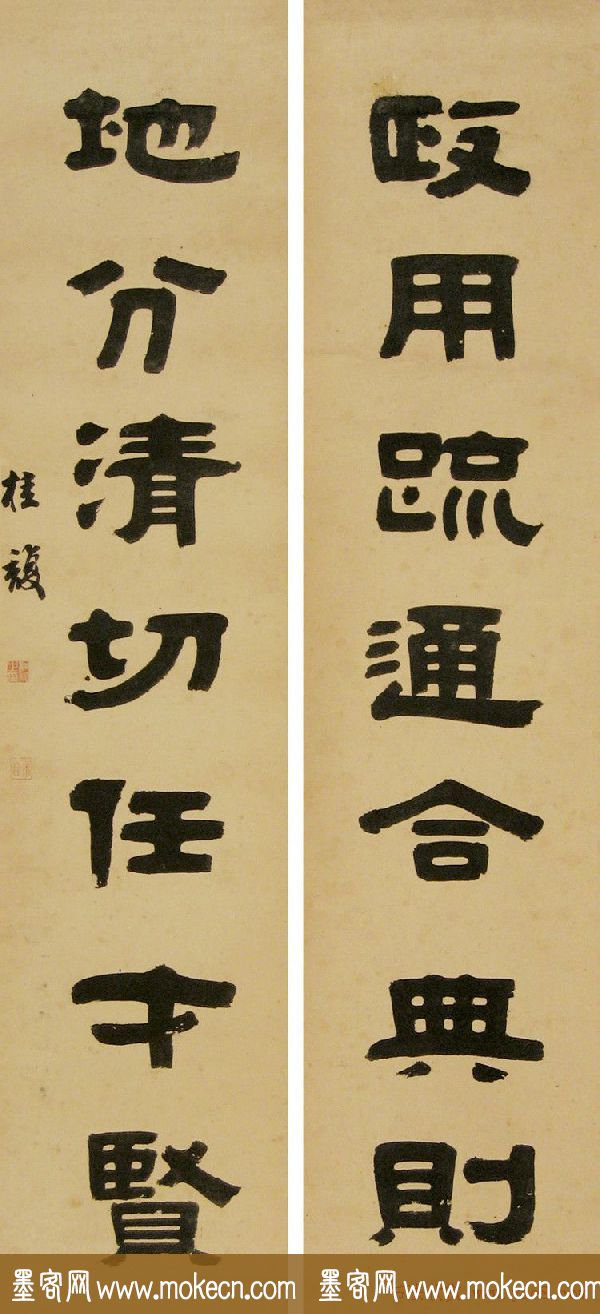 政用疏通合典則
地分清切任才賢
桂馥
墨客网 www.mokecn.com
墨客网 www.mokecn.com